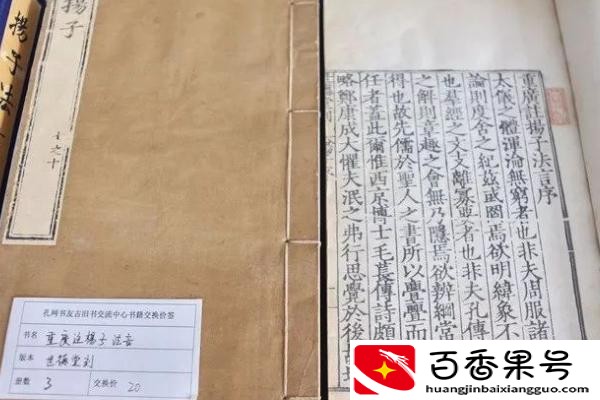 揚子法
揚子
之十
孔网书友古旧书交流中心书籍交换价签
书名 重廣註揚子法言
版本 世德堂刻
册数 3 交换价 20
重廣註揚子法言序
太儀之體渾淪無窮者也非夫周服諸
論則度舍之紀茲或罔焉欲明緯象不
也羣經之文支離纂奧者也非夫孔傳
之解則章趣之會無乃隱焉欲辨綱常
得也故先儒於聖人之書所以興註而
任者蓋此爾惟西京博士毛萇傳詩頗
略鄭康成大懼夫泯之弗行思覺於後
百香果号
huangjinbaixiangguo.com